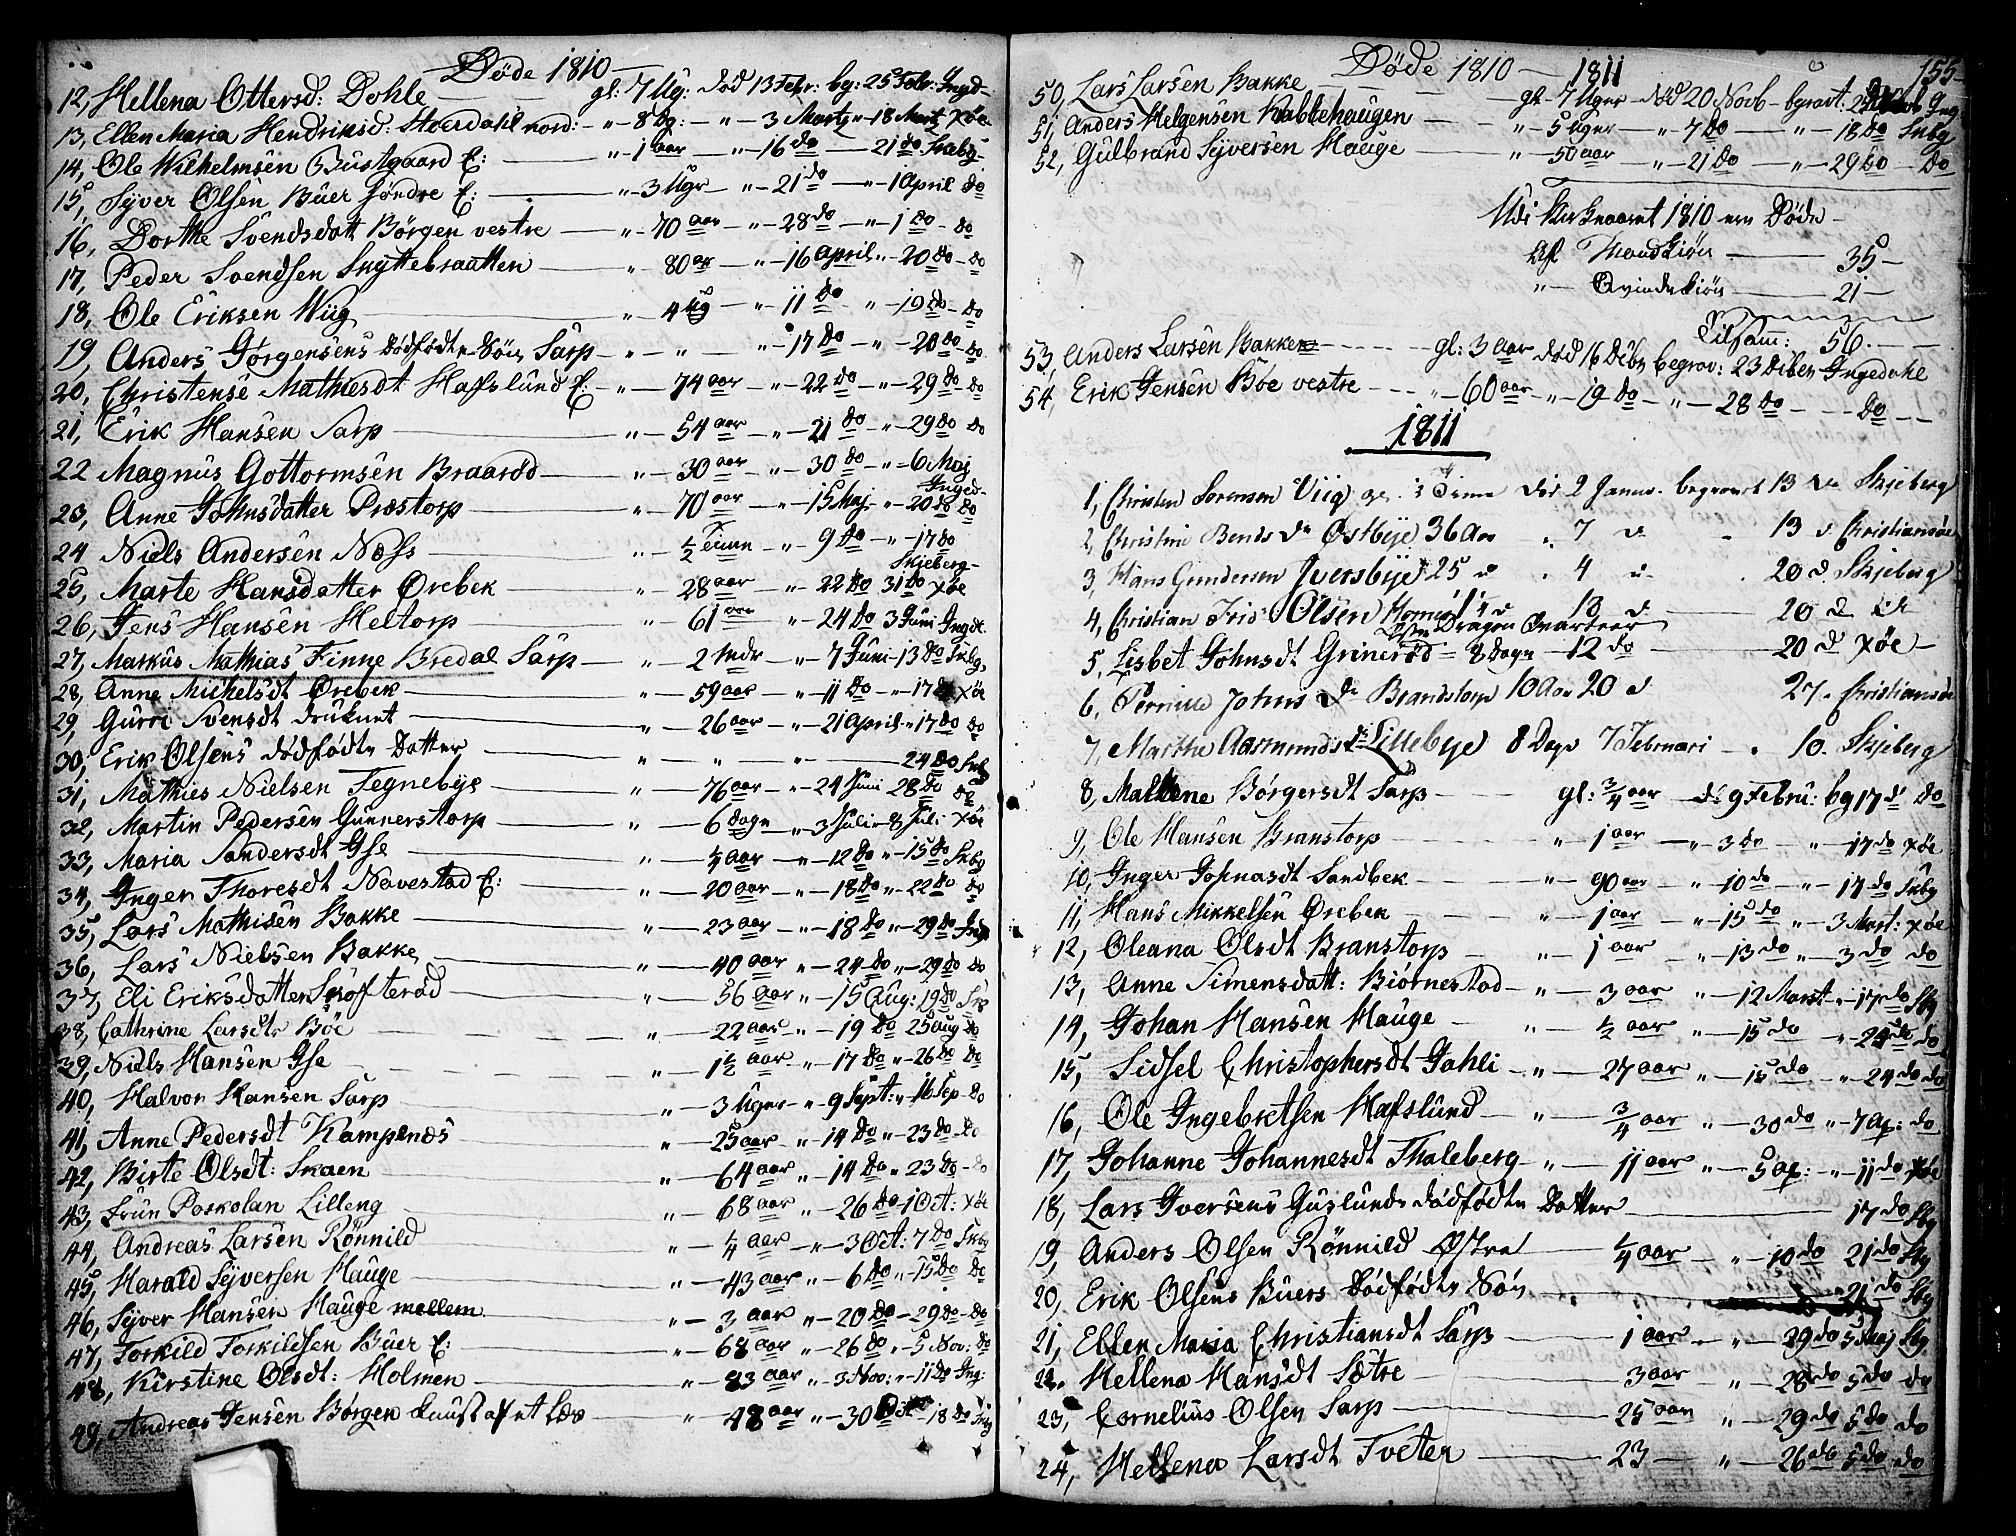 Døde 1810
12, Hellena Ottersd: Dohle — gl: 7 Ug: død 13 Febr: bg: 25 Febr: Ingd
13, Ellen Maria Hendriksd: nord: " 8 " 3 Martz " 18 Martz Xöe
14, Ole Wilhelmsen Bustgaard E: " 1 aar " 16 do 21 do Skbg
15, Syver Olsen Büer søndre E: " 3 Ugr " 21 do " 1 April do
16, Dorthe Svendsdatt Børgen vestre " 70 aar " 28 do " 1 do do
17, Peder Svendsen Snyttebraatten " 80 ar " 16 April " 20 do do
18, Ole Eriksen Wiig " 4 Ug " 11 do " 19 do do
19, Anders Jørgensens dødfødte Søn Sarp " " " 17 do " 20 do do
20, Christense Mathiesdt Hafslund E: " 74 aar " 22 do " 29 do do
21, Erik Hansen Sarp " 54 aar " 21 do " 29 do do
22 Magnus Gottormsen Braarød " 30 aar " 30 do " 6 Maj
23, Anne Johnsdatter Præstorp " 70 aar " 15 Maj " 20 do Inged do
24 Niels Andersen Næss " ½ Time " 9 do " 17 do
25, Marte Hansdatter Ørebek " 28 aar " 22 do 31 do Skjeberg Xöe
26, Jens Hansen Heltorp " 61 aar " 24 do 3 Juni Ingd:
27, Markus Mathias Finne Bredal Sarp " 2 Mdr " 7 Juni 13 do Skbg
28, Anne Michelsdt Ørebek " 59 aar " 11 do " 17 do Xöe
29, Gurri Svensdt druknet " 26 aar " 21 April " 17 do do
30, Erik Olsens dødfødte Datter " " 24 do Skbg
31, Mathies Nielsen Tegnebye " 76 aar " 24 Juni 28 do do
32, Martin Pedersen Gunnerstorp " 6 dage " 3 Juli 8 Juli Xöe
33, Maria Sandersdt Ise " ¼ aar " 12 do " 15 do Skbg
34, Inger Thoresdt Navestad E: " 20 aar " 18 do " 22 do do
35, Lars Mathisen Bakke " 23 aar " 18 do " 29 do Ing
36, Lars Nielsen Bakke " 40 aar " 24 do " 29 do do
37, Eli Eriksdatter Skofterød " 56 aar " 15 Aug: 19 do
38, Cathrine Larsdtr Böe " 22 aar " 19 do 25 Aug do
39, Niels Hansen Ise " 1½ aar " 17 do " 26 do do
40, Halvor Hansen Sarp " 3 Uger " 9 Sept: " 16 Sep do
41, Anne Pedersdt Kampenæs " 25 aar " 14 do " 23 do do
42, Birte Olsdt: Skaen " 64 aar " 14 do " 23 do do
43, Frun Poskolan Lilleng " 68 aar " 26 do " 1 Oct: Xöe
44, Andreas Larsen Rønnild " ¼ aar " 3 Oct: 7 do Skbg
45, Harald Syversen Hauge " 43 aar " 6 do " 15 do do
46, Syver Hansen Hauge mellem " 3 aar " 20 do 29 do do
47, Torkild Torkildsen Büer E: " 68 aar " 26 do 5 Nov: do
48, Kirstine Olsdt: Holmen " 83 aar " 3 Nov: 11 do Ing:
49, Andreas Jensen Børgen " 48 aar " 30 18 do
Døde 1810 — 1811
155
50, Lars Larsen Bakke gl. 7 Uger død 20 Novb begravt: 25 Ing:
51, Anders Helgensen Kabbehaugen " 5 Uger " 7 do " 18 do Skbg
52, Gulbrand Syversen Hauge " 50 aar " 21 do " 29 do do
Udi Kirkeaaret 1810 ere Døde
Af Mandkiøn 35
" Qvindekiøn 21
Tilsam: 56.
53, Anders Larsen Bakke gl: 3 aar død 16 Dcbr begrav: 23 Dcber Ingedahl
54, Erik Jensen Böe vestre " 60 aar " 19 do " 28 do do
1811
1, Christen Sorensen Viig død 2 Janua. begravet 13 Skjeberg
2, Christine Bendsdr Østbye 36 Aar " 7 13 Christiansöe
3, Hans Gundersen Iversbye 25 " 4 20 d. Skjeberg
4, Christian Olsen Dragon 13 20 d
5, Lisbet Johnsdt Grinerød 8 Dage 12 do 20 d Xöe
6, Pernille Johnsdr Brandstorp 10 Aar 20 d 27 Christiansöe
7, Marthe Aasmundsdr Lillebye 8 Dage 7 Februari " 10. Skjeberg
8, Mallene Børgersdt Sarp gl: ¾ aar d: 9 Febru: bg 17 d do
9, Ole Hansen Branstorp " 1 aar " 3 do " 17 do Xöe
10, Inger Johnasdt Sandbek " 90 aar " 10 do " 17 do Skbg
11, Hans Mikkelsen Ørebek " 1 aar " 15 do " 3 Mart: Xöe
12, Oleana Olsdt Branstorp " 1 aar " 13 do " 3 do do
13, Anne Simensdatt: Biørnestad " 3 aar " 12 Marst " 17 do Sbg
14, Johan Hansen Hauge " ½ aar " 15 do " 24 do do
15, Sidsel Christophersdt Jahli " 27 aar " 15 do " 24 do do
16, Ole Ingebretsen Hafslund " ¾ aar " 30 do " 7 Ap: do
17, Johanne Johannesdt Thaleberg " 11 aar " 5 Ap: " 11 do Xöe
18, Lars Iversens Guslunds dødfødte Datter 17 do Sbg
19, Anders Olsen Rönnild Østre ¼ aar " 10 do 21 do Sbg
20, Erik Olsens Büers dødfødte Søn " 21 do Sbg
21, Ellen Maria Christiansdt Sarp 1 aar " 29 do 5 Maj Sbg
22. Hellena Hansdt Sætre 3 aar " 28 do 5 do do
23, Cornelius Olsen Sarp 25 aar " 29 do 5 do do
24, Hellena Larsdt Tveter 23 " 26 do 5 do do